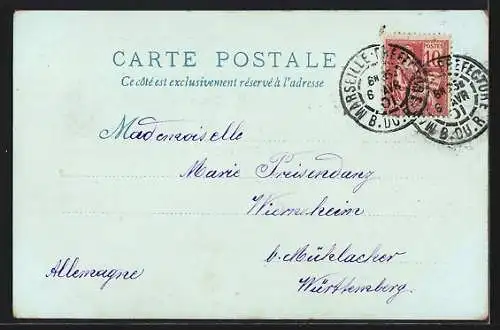 CARTE POSTALE
Ce côté est exclusivement réservé à l'adresse
POSTES
10
MARSEILLE
6 AVR
01
B. DU R.
PREFECTURE
AVR
01
B. DU R.
Mademoiselle
Marie Preisendanz
Wiernsheim
b. Mühlacker
Württemberg.
Allemagne